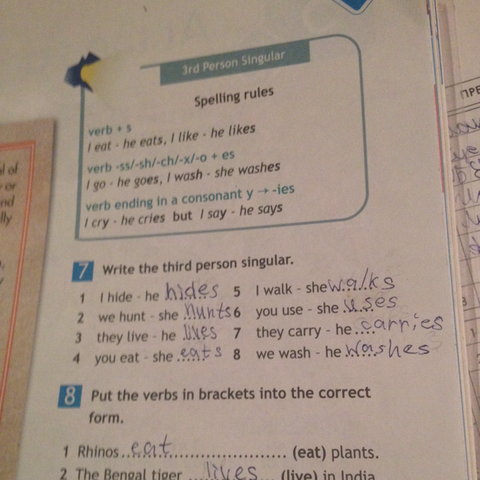 3rd Person Singular
Spelling rules
verb + s
I eat - he eats, I like - he likes
verb -ss/-sh/-ch/-x/-o + es
I go - he goes, I wash - she washes
verb ending in a consonant y → -ies
I cry - he cries but I say - he says
7 Write the third person singular.
1 I hide - he hides 5 I walk - she walks
2 we hunt - she hunts 6 you use - she uses
3 they live - he lives 7 they carry - he carries
4 you eat - she eats 8 we wash - he washes
8 Put the verbs in brackets into the correct
form.
1 Rhinos eat (eat) plants.
2 The Bengal tiger lives (live) in India